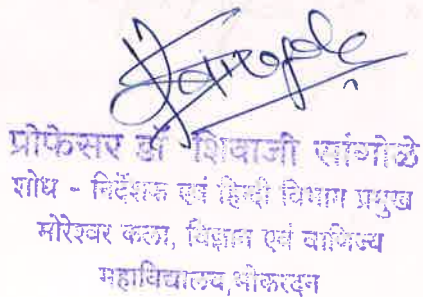 प्रोफेसर डॉ शिवाजी सांगोळे
शोध - निर्देशक एवं हिन्दी विभाग प्रमुख
मोरेश्वर कला, विज्ञान एवं वाणिज्य
महाविद्यालय,भोकरदन